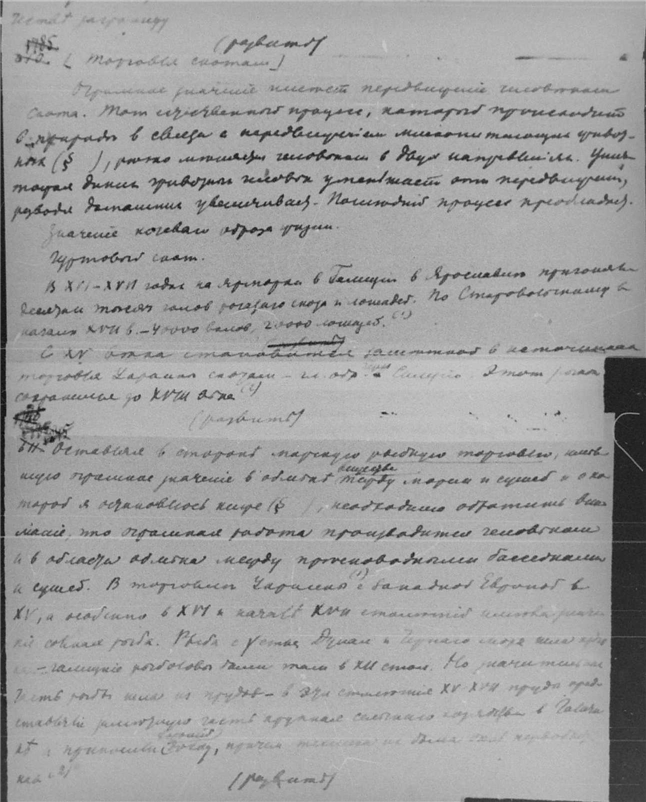 (развить)
[Торговля скотом]
Огромное значение имеет передвижение человеком
скота. Тот естественный процесс, который происходит
в природе в связи с передвижением млекопитающих живот-
ных (§ ), человеком в двух направлениях. Унич-
тожая диких животных человек уменьшает это передвижение,
разводя домашних увеличивая. Последний процесс преобладает.
Значение кочевого образа жизни.
Гуртовый скот.
В XVI-XVII годах на ярмарки в Галиции в Ярославль пригоняли
десятки тысяч голов рогатого скота и лошадей. По Старовольскому в
начале XVII в. - 40000 волов, 20000 лошадей. (1)
С XV века становится заметной в источниках
торговля Украины скотом - гл. обр. Этот
до XVIII века (2)
(развить)
511. Оставляя в стороне морскую рыбную торговлю, имев-
шую огромное значение в обмене веществ между морем и сушей и о ко-
торой я остановлюсь ниже (§ ), необходимо обратить вни-
мание, что огромная работа производится человеком
и в области обмена между пресноводными бассейнами
и сушей. В торговле Украины (1) с Западной Европой в
XV, а особенно в XVI и начале XVII столетий имела значе-
ние соленая рыба. Рыба с устьев Дуная и Черного моря шла
- галицкие рыболовы были там в XII стол. Но значительная
часть рыбы шла из прудов - в эти столетия XV-XVII пруды пред-
ставляли часть хозяйства в
и приносили доход, причем
(2)
(развить)